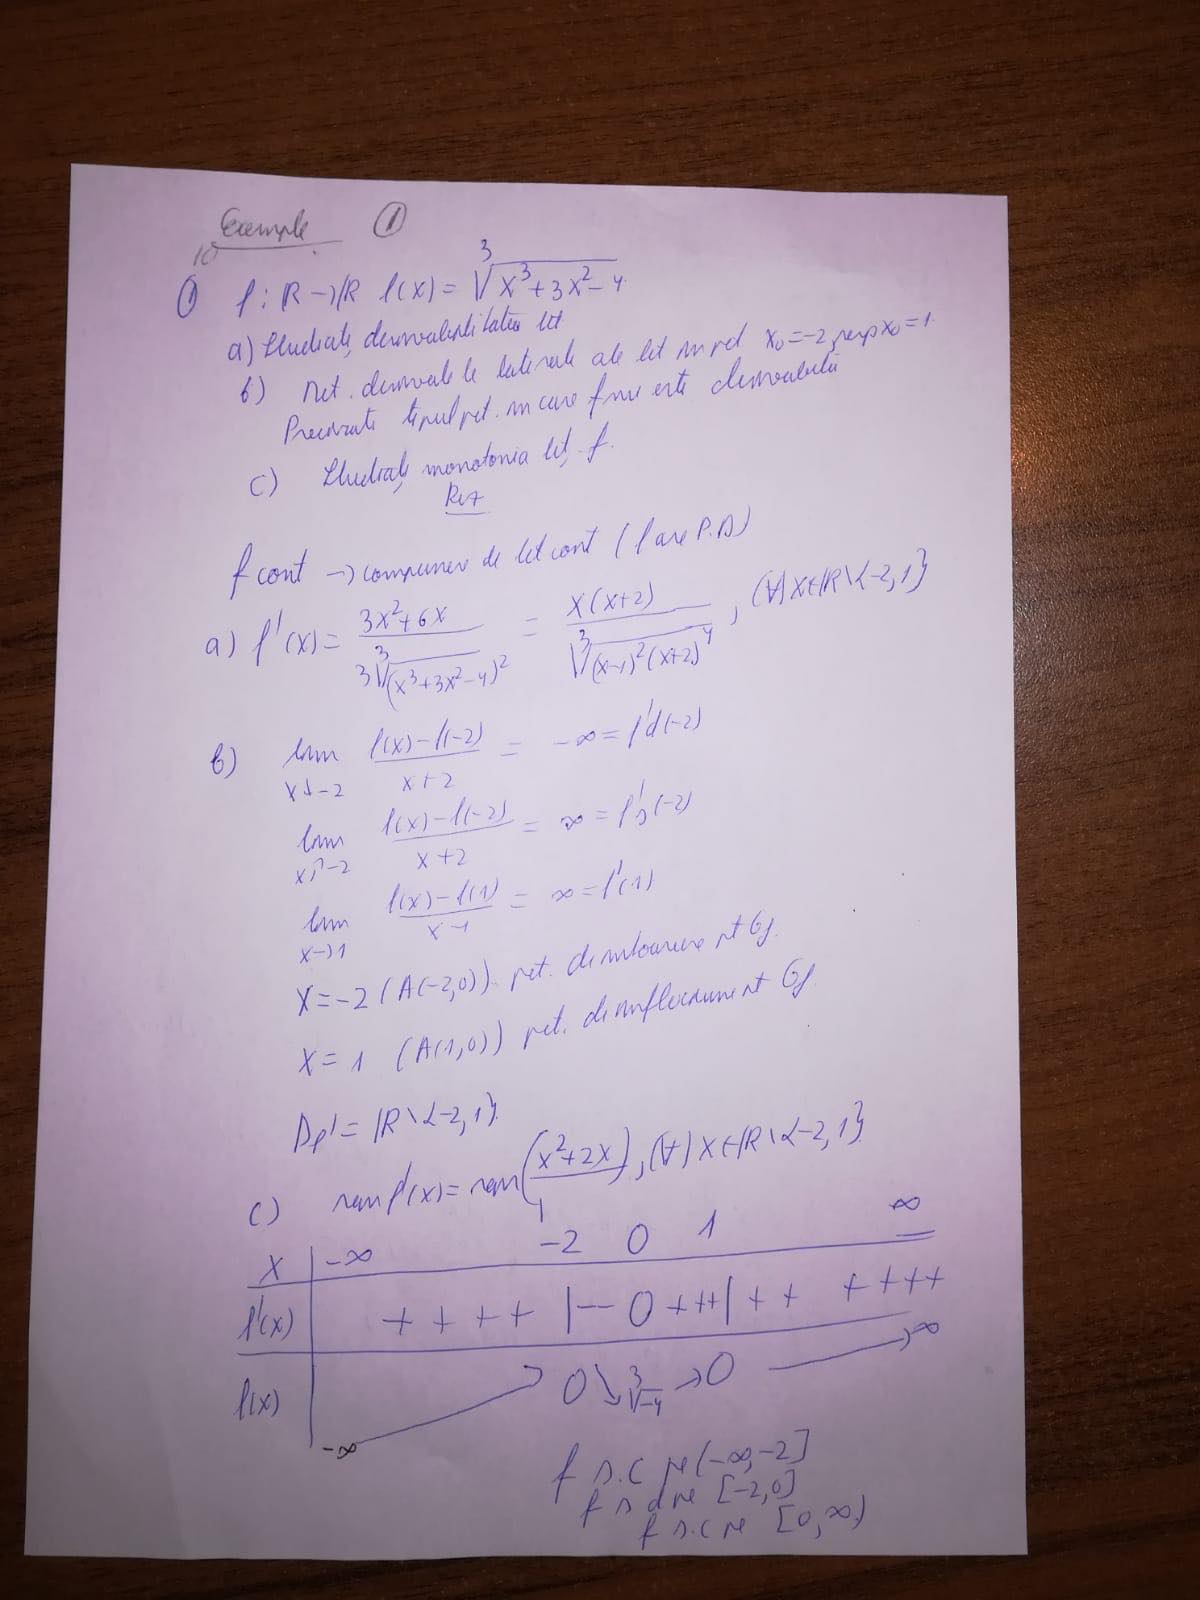 Exemple ①
10
① f: ℝ→ℝ f(x) = ∛(x³+3x²-4)
a) Studiați derivabilitatea fct
b) Det. derivatele laterale ale fct în pct x₀=-2, resp x₀=1.
Precizați tipul pct. în care f nu este derivabilă
c) Studiați monotonia fct, f.
Rez
f cont → compunere de fct cont (f are P.D)
a) f'(x) = (3x²+6x)/(3∛(x³+3x²-4)²) = x(x+2)/∛((x-1)²(x+2)⁴), (∀)x∈ℝ\{-2,1}
b) lim x↓-2 (f(x)-f(-2))/(x+2) = -∞ = f'd(-2)
lim x↗-2 (f(x)-f(-2))/(x+2) = ∞ = f's(-2)
lim x→1 (f(x)-f(1))/(x-1) = ∞ = f'(1)
x=-2 (A(-2,0)) pct. de întoarcere pt Gf.
x=1 (A(1,0)) pct. de inflexiune pt Gf.
Df' = ℝ\{-2,1}.
c) sgn f'(x) = sgn((x²+2x)/1), (∀)x∈ℝ\{-2,1}
x | -∞ -2 0 1 ∞
f'(x) | + + + + |-- 0 +++| + + + + + +
f(x) | -∞ → 0 ↘ ∛-4 → 0 → ∞
f s.c pe (-∞,-2]
f s d pe [-2,0]
f s.c pe [0,∞)